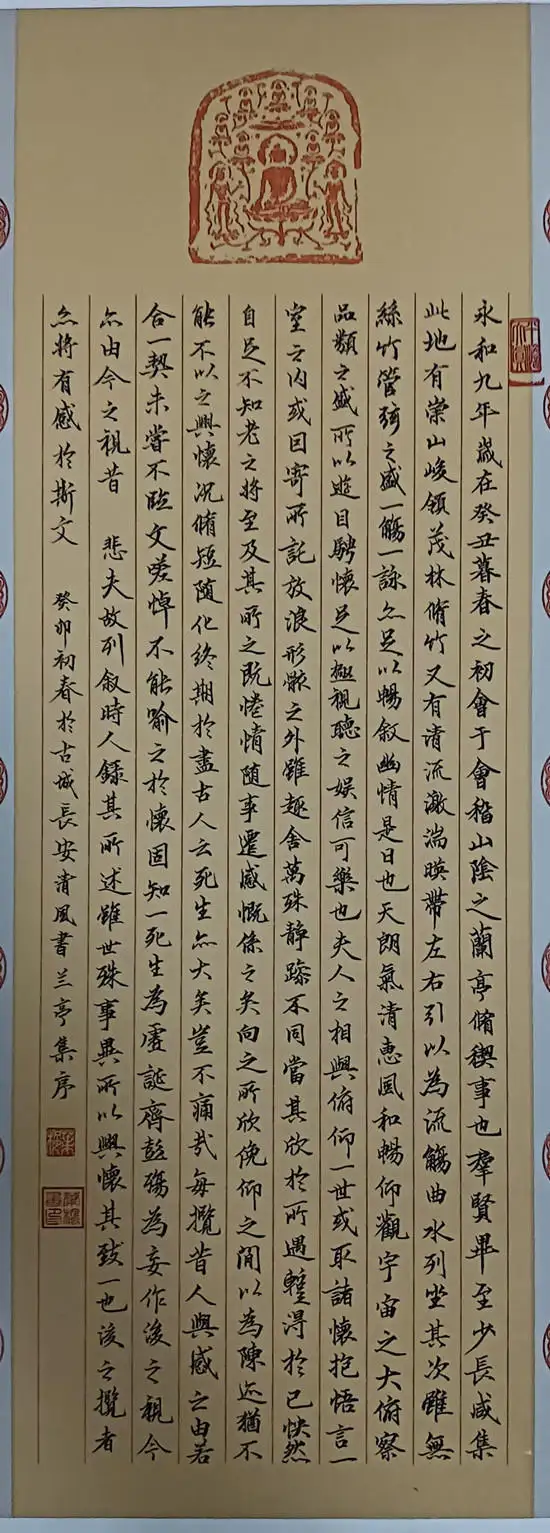 永和九年歲在癸丑暮春之初會于會稽山陰之蘭亭脩禊事也羣賢畢至少長咸集
此地有崇山峻領茂林脩竹又有清流激湍暎帶左右引以為流觴曲水列坐其次雖無
絲竹管弦之盛一觴一詠亦足以暢敘幽情是日也天朗氣清惠風和暢仰觀宇宙之大俯察
品類之盛所以遊目騁懷足以極視聽之娛信可樂也夫人之相與俯仰一世或取諸懷抱悟言一
室之内或因寄所託放浪形骸之外雖趣舍萬殊靜躁不同當其欣於所遇蹔得於己怏然
自足不知老之將至及其所之既惓情隨事遷感慨係之矣向之所欣俛仰之閒以為陳迹猶不
能不以之興懷況脩短隨化終期於盡古人云死生亦大矣豈不痛哉每攬昔人興感之由若
合一契未嘗不臨文嗟悼不能喻之於懷固知一死生為虛誕齊彭殤為妄作後之視今
亦由今之視昔 悲夫故列敘時人錄其所述雖世殊事異所以興懷其致一也後之攬者
亦將有感於斯文 癸卯初春於古城長安清風書兰亭集序